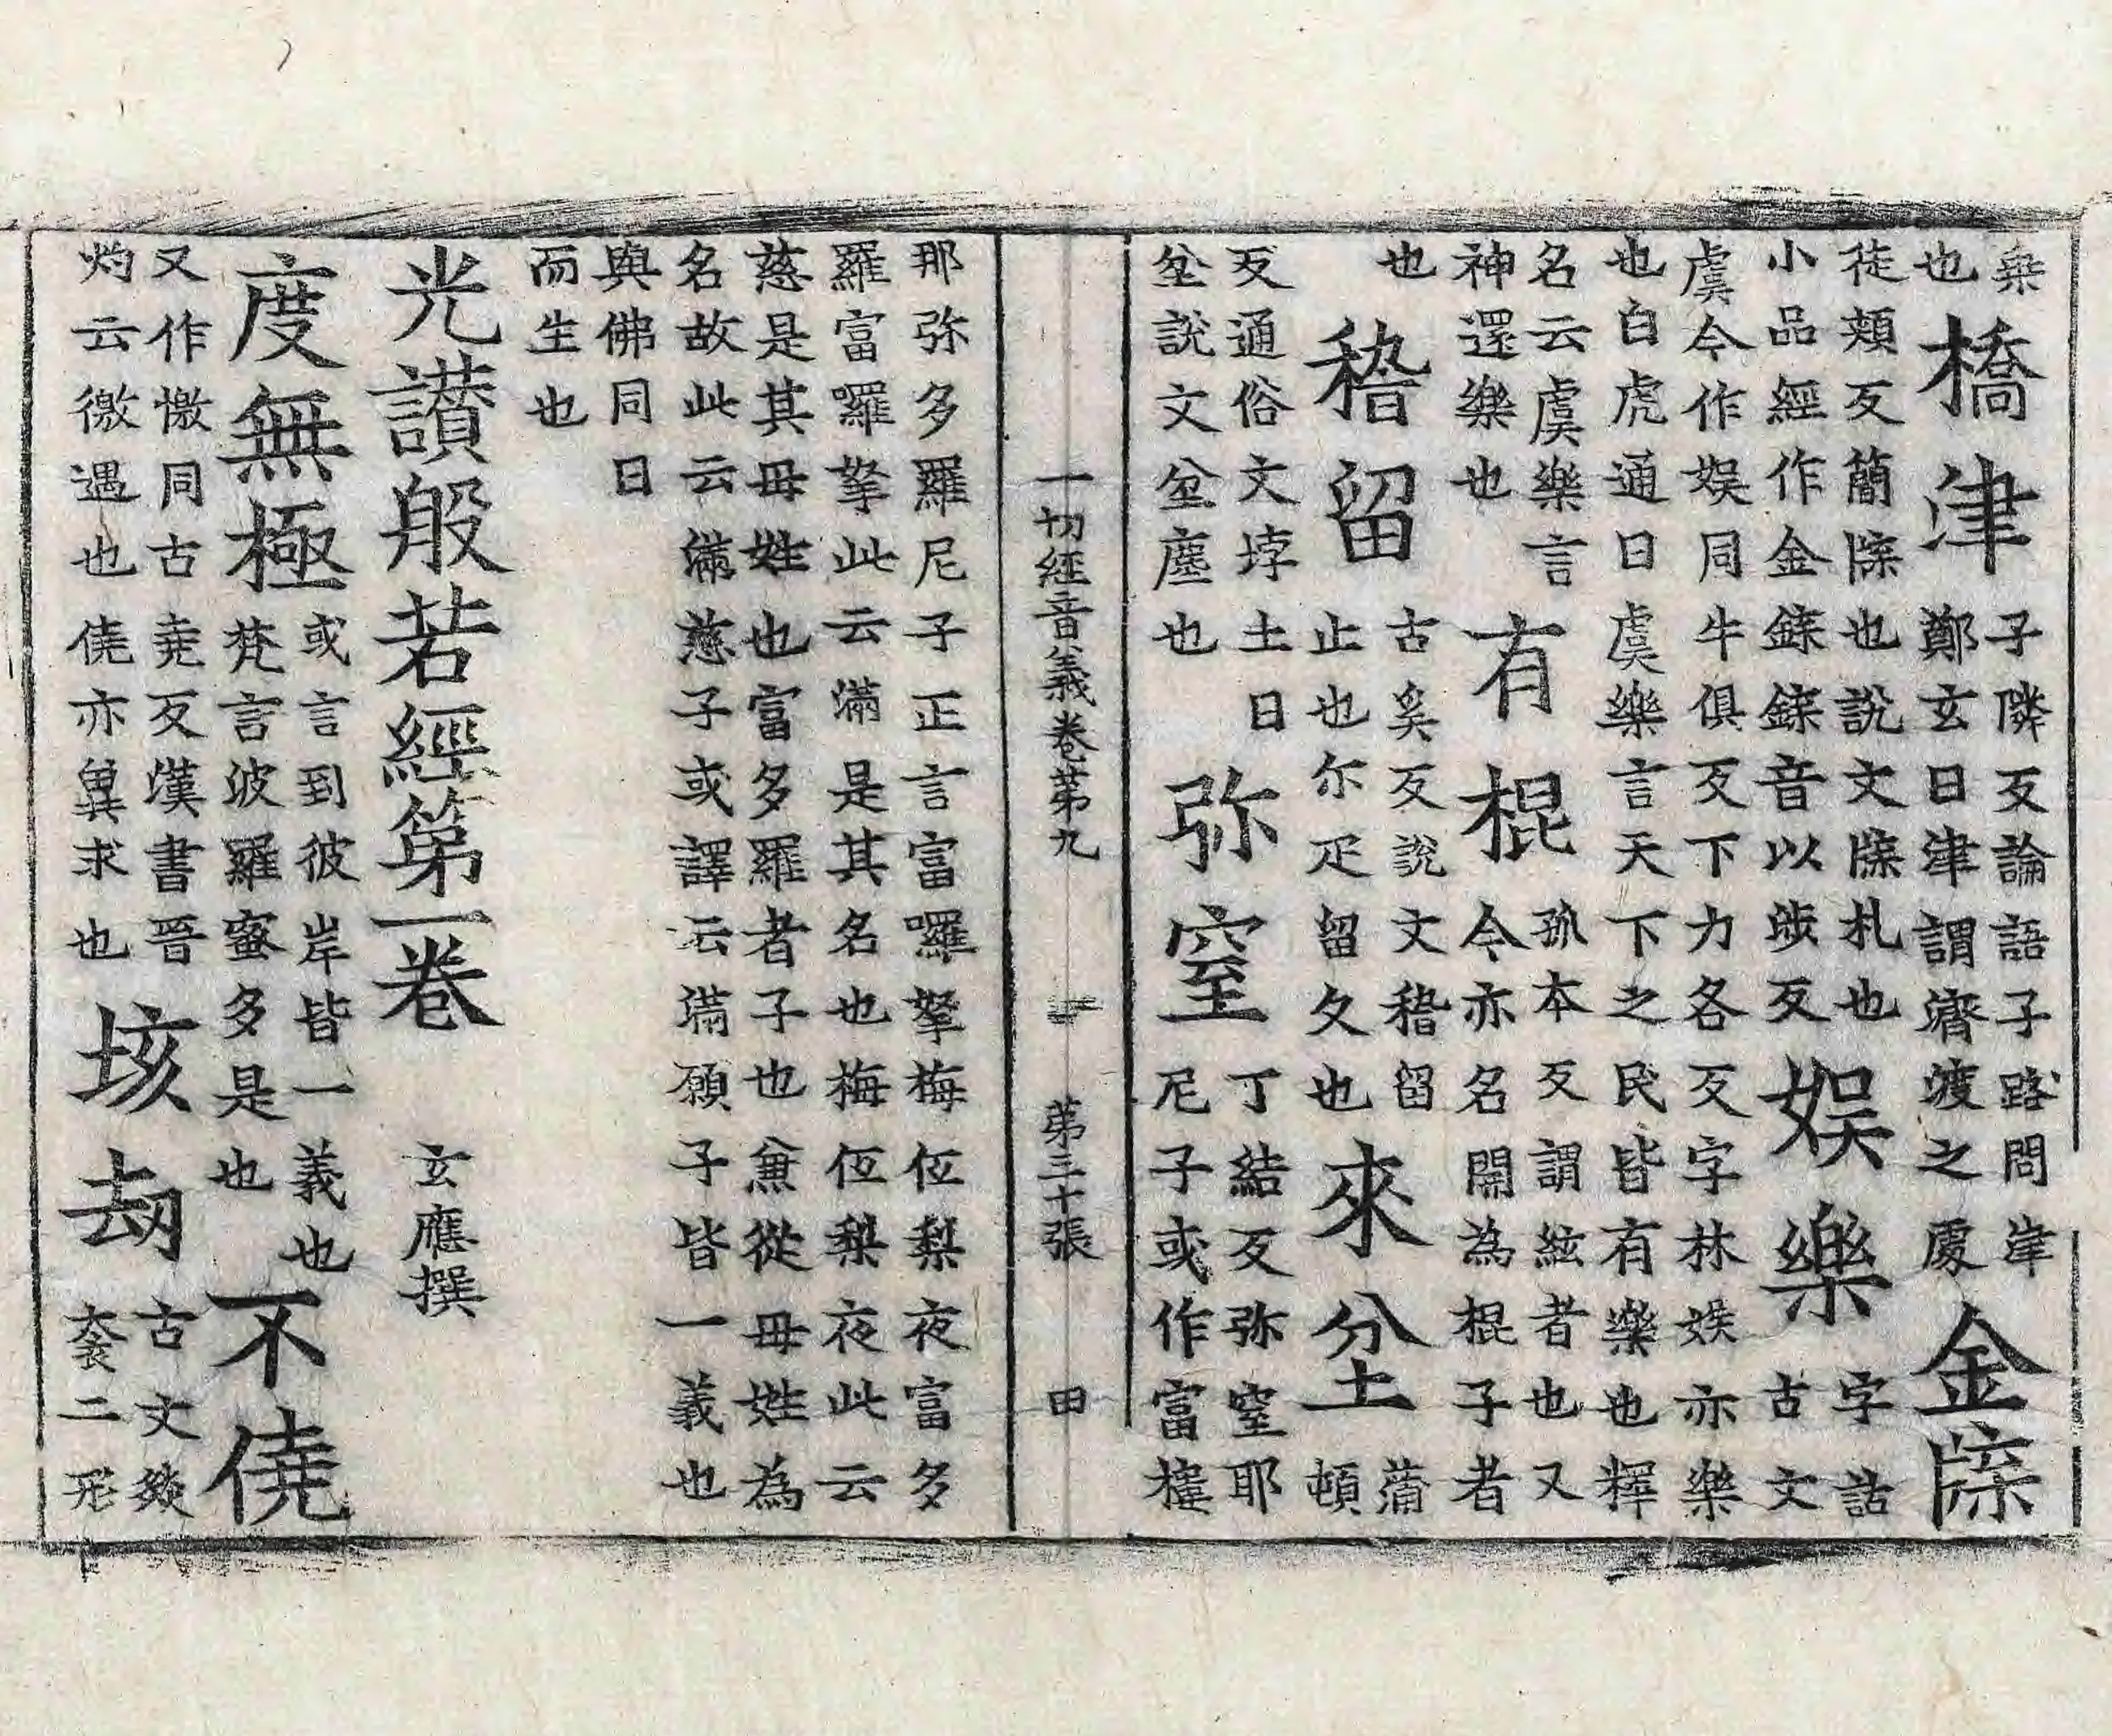 桒
也
橋津
子隣反論語子路問津
鄭玄曰津謂濟渡之處
金牒
徒頰反簡牒也說文牒札也
小品經作金鍱鍱音以涉反
娛樂
字詁
古文
虞今作娛同牛俱反下力各反字林娛亦樂
也白虎通曰虞樂言天下之民皆有樂也釋
名云虞樂言
神還樂也
有棍
孤本反謂絃者也又
今亦名開為棍子者
也
稽留
古奚反說文稽留
止也尓疋留久也
來坌
蒲
頓
反通俗文埻土曰
坌說文坌塵也
弥窒
丁結反弥窒耶
尼子或作富樓
一切經音義卷第九 第三十張 田
那弥多羅尼子正言富囉拏梅低梨夜富多
羅富囉拏此云滿是其名也梅低梨夜此云
慈是其母姓也富多羅者子也兼從母姓為
名故此云滿慈子或譯云滿願子皆一義也
與佛同日
而生也
光讚般若經第一卷 玄應撰
度無極
或言到彼岸皆一義也
梵言波羅蜜多是也
不僥
又作憿同古堯反漢書晉
灼云徼遇也僥亦冀求也
垓劫
古文
二形